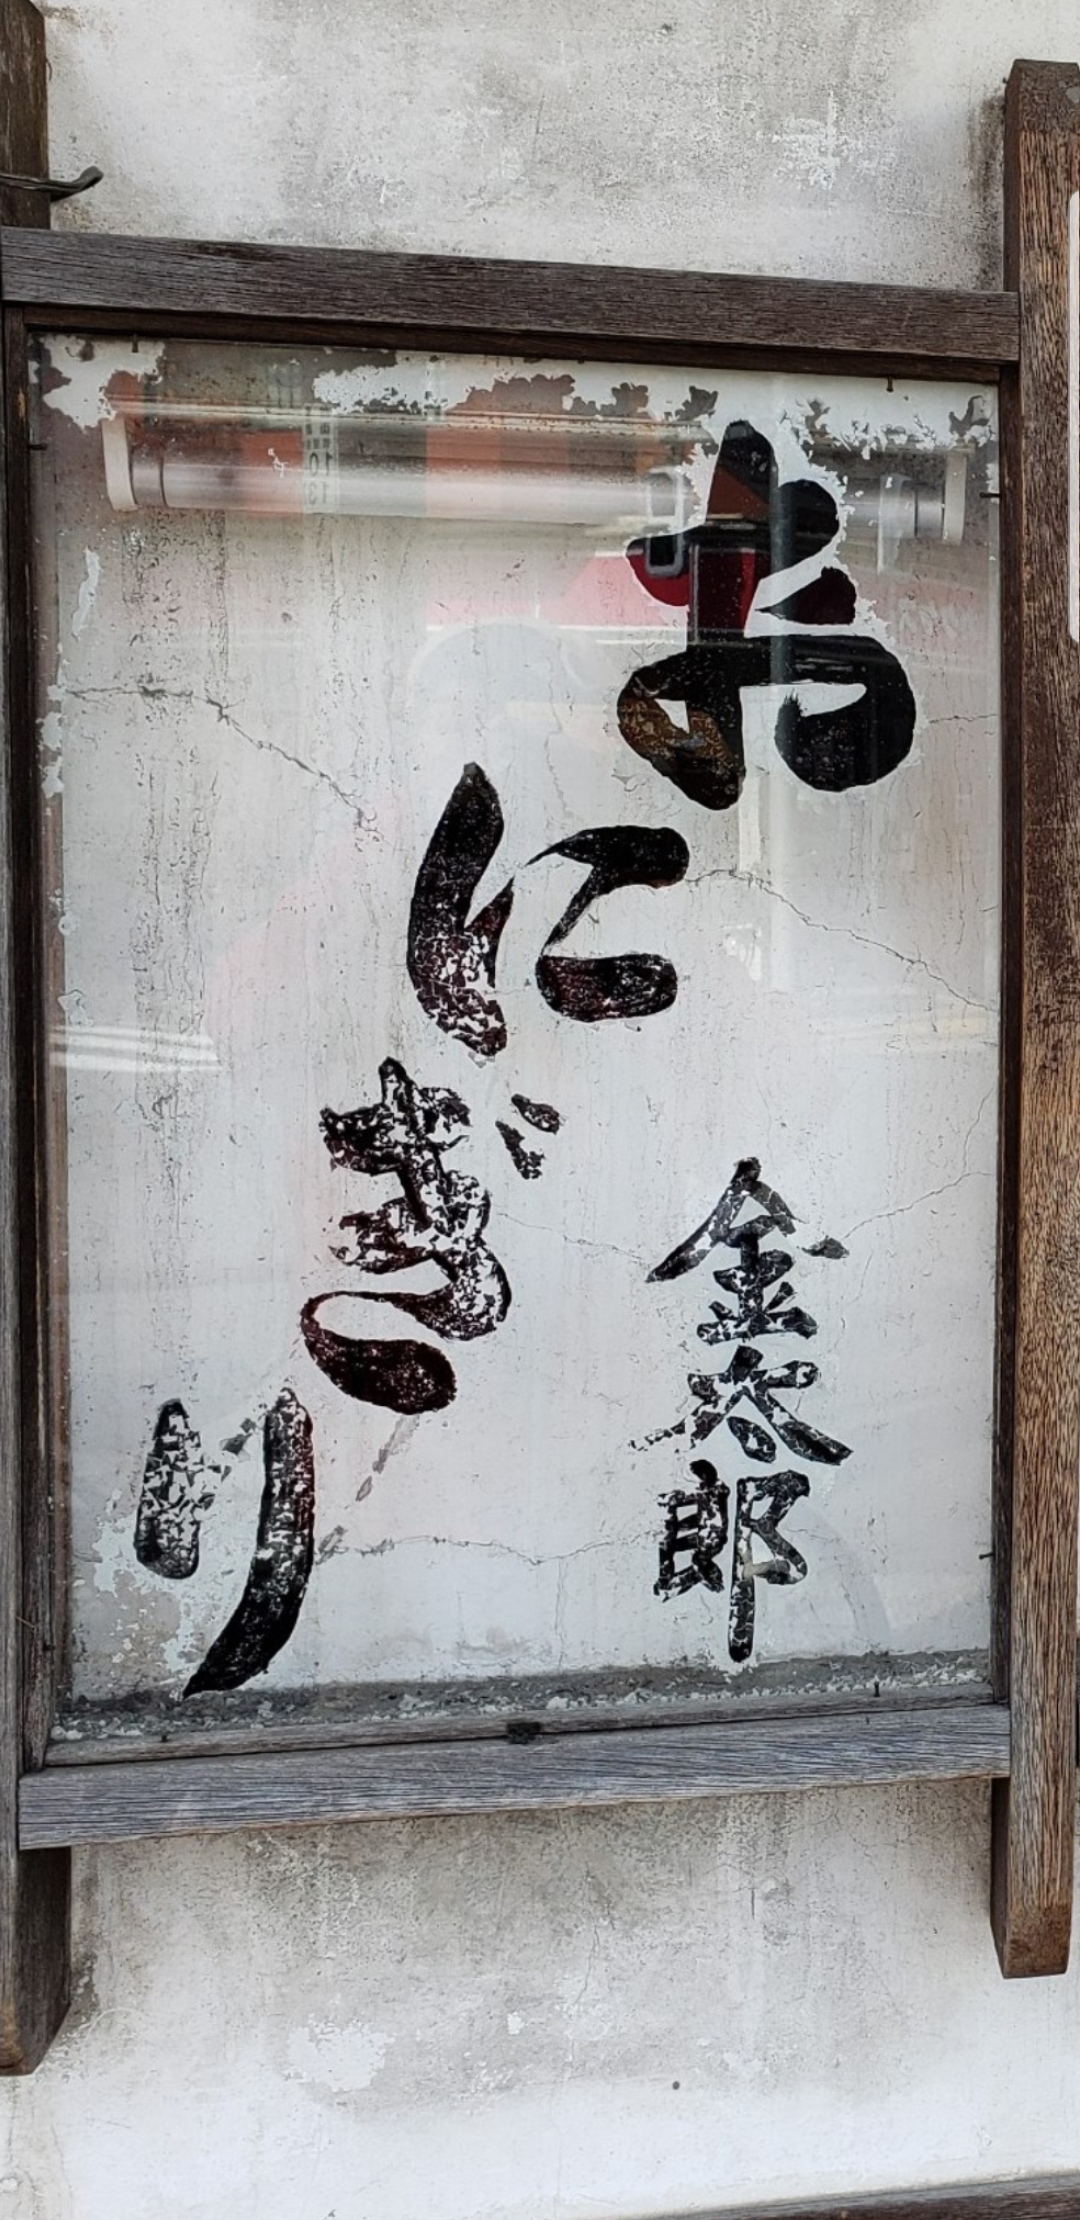 おにぎり
金太郎